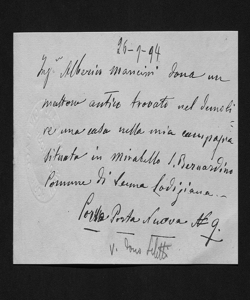 26-9-94
Ing.r Alberico Mancini dona un
mattone antico trovato nel demoli-
re una casa nella mia campagna
situata in Mirabello S. Bernardino
Comune di Senna Lodigiana
Porta Nuova N 9.
v. dono